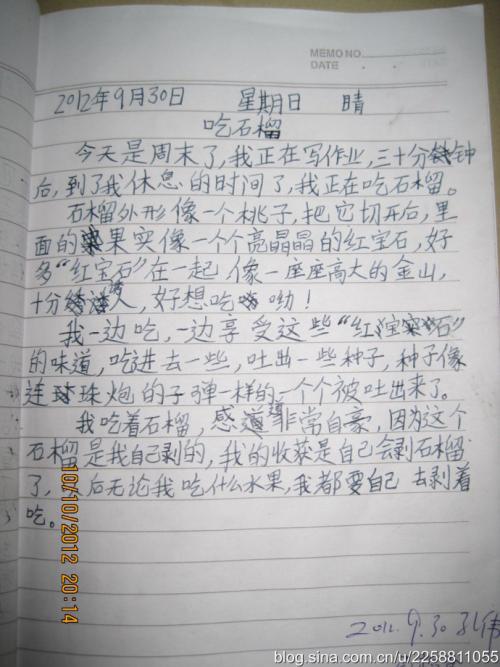 MEMO NO.
DATE
2012年9月30日 星期日 晴
吃石榴
今天是周末了,我正在写作业,三十分钟
后,到了我休息的时间了,我正在吃石榴。
石榴外形像一个桃子,把它切开后,里
面的果实像一个个亮晶晶的红宝石,好
多“红宝石”在一起像一座座高大的金山,
十分诱人,好想吃呦!
我一边吃,一边享受这些“红宝石”
的味道,吃进去一些,吐出一些种子,种子像
连珠炮的子弹一样的一个个被吐出来了。
我吃着石榴,感道非常自豪,因为这个
石榴是我自己剥的,我的收获是自己会剥石榴
了,后无论我吃什么水果,我都要自己去剥着
吃。
10/10/2012 20:14
2012.9.30
blog.sina.com.cn/u/2258811055